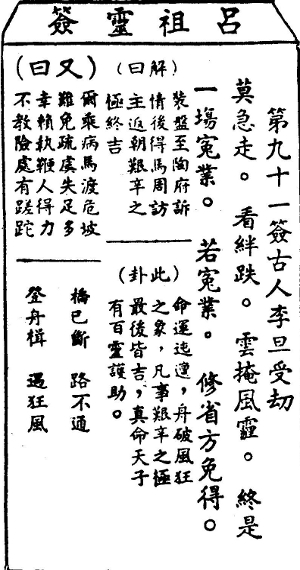 呂祖靈簽
第九十一簽古人李旦受劫
莫急走。看絆跌。雲掩風霾。終是
一塲冤業。若冤業。修省方免得。
(解曰)
裝盤至陶府訴
情後得馬周訪
主返朝艱辛之
極終吉
(此卦)
命運迍邅,舟破風狂
之象,凡事艱辛之極
最後皆吉,真命天子
有百靈護助。
(又曰)
爾乘病馬渡危坡
難免疏虞失足多
幸賴執鞭人得力
不教險處有蹉跎
橋已斷 路不通
登舟楫 遇狂風